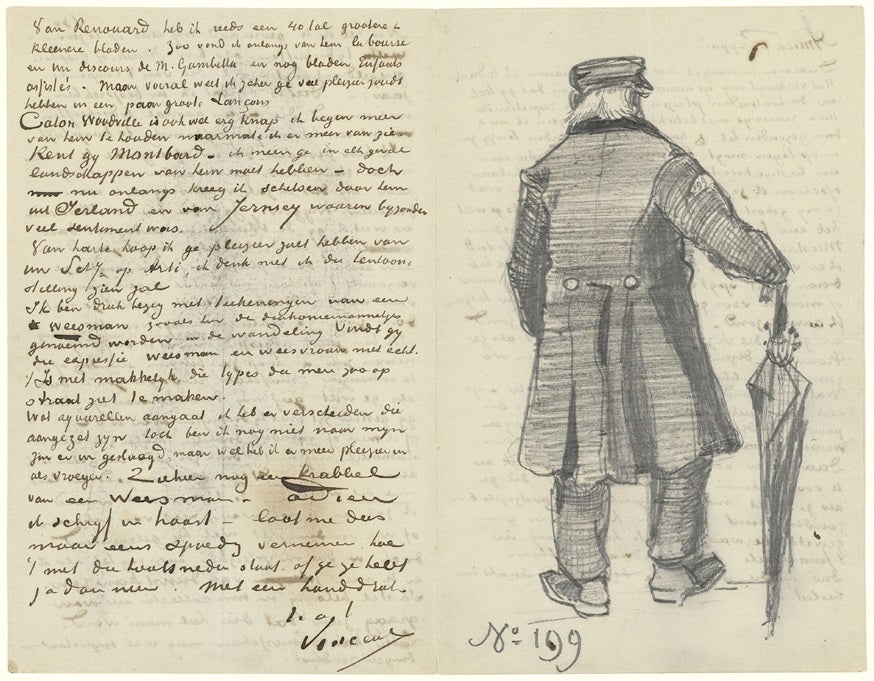 Van Renouard heb ik reeds een 40 tal grootere &
kleinere bladen. Zoo vond ik onlangs van hem la bourse
en un discours de M. Gambetta en nog bladen Enfants
assistés. Maar vooral weet ik zeker ge veel pleizier zoudt
hebben in een paar groote Lançons
Caton Woodville is ook wel erg knap ik begin meer
van hem te houden naarmate ik er meer van zie
Kent gy Montbard – ik meen ge in elk geval
landschappen van hem moet hebben – doch
nu onlangs kreeg ik schetsen door hem
uit Ierland en van Jersey waarin byzonder
veel sentiment was.
Van harte hoop ik ge pleizier zoet hebben van
uw op Arti, ik denk niet ik die tentoon-
stelling zien zal
Ik ben druk bezig met teekeningen van een
weesman zooals hier de diakoniemannetjes
genoemd worden in de wandeling Vindt gy
die expressie weesman en weesvrouw niet echt.
't Is niet makkelyk die types die men zoo op
straat ziet te maken.
Wat aquarellen aangaat ik heb er verscheiden die
aangezet zyn toch ben ik nog niet naar myn
zin er in geslaagd maar wel heb ik er meer pleizier in
als vroeger. Ziehier nog een krabbel
van een weesman – adieu
ik schryf in haast – laat me dus
maar eens spoedig vernemen hoe
't met die houtsneden staat. of ge ze hebt
ja dan neen. Met een handdruk.
t. à t.
Vincent
No 199